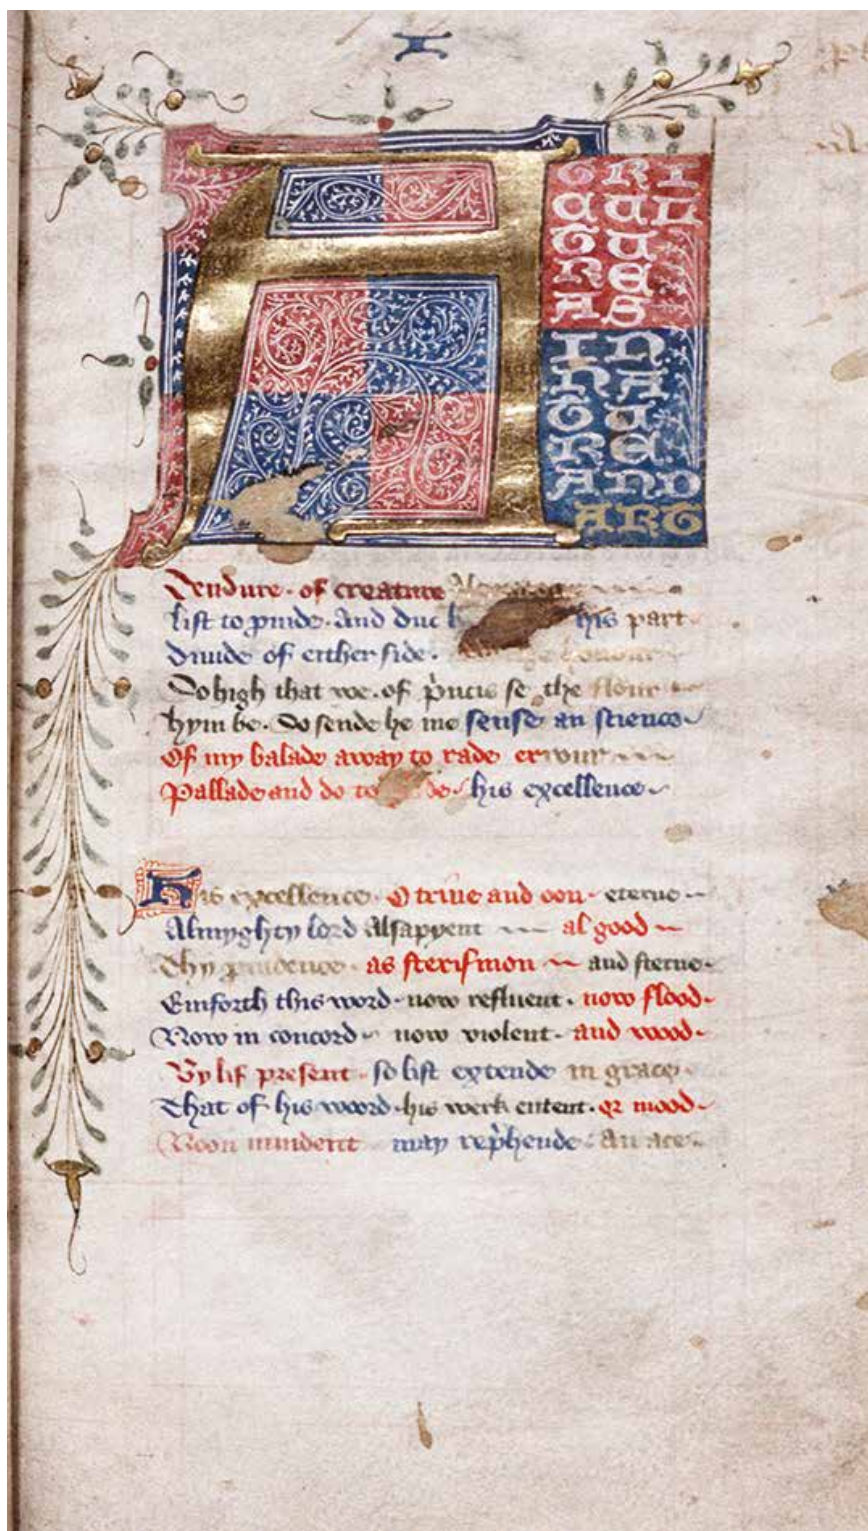 I
A GRI
CUL
TU
RE
AS
IN
NA
TU
RE
AND
ART
Tendure · of creature
list to provide · And duc his part
Divide of either side ·
So high that we · of p̍ncis se the flour
hym be · So sende he me sense an science
Of my balade away to rade errour
Pallade and do to his excellence
His excellence · O trine and oon · eterne
Almyghty lord Alsapyent al good
Thy prudence · as steris mon and sterne ·
Emforth this word · now refluent · now flood
Now in concord now violent · and wood
By lif present · so list extende in grace
That of his woord · his werk entent · er mood
Noon may rep̍hende An ace